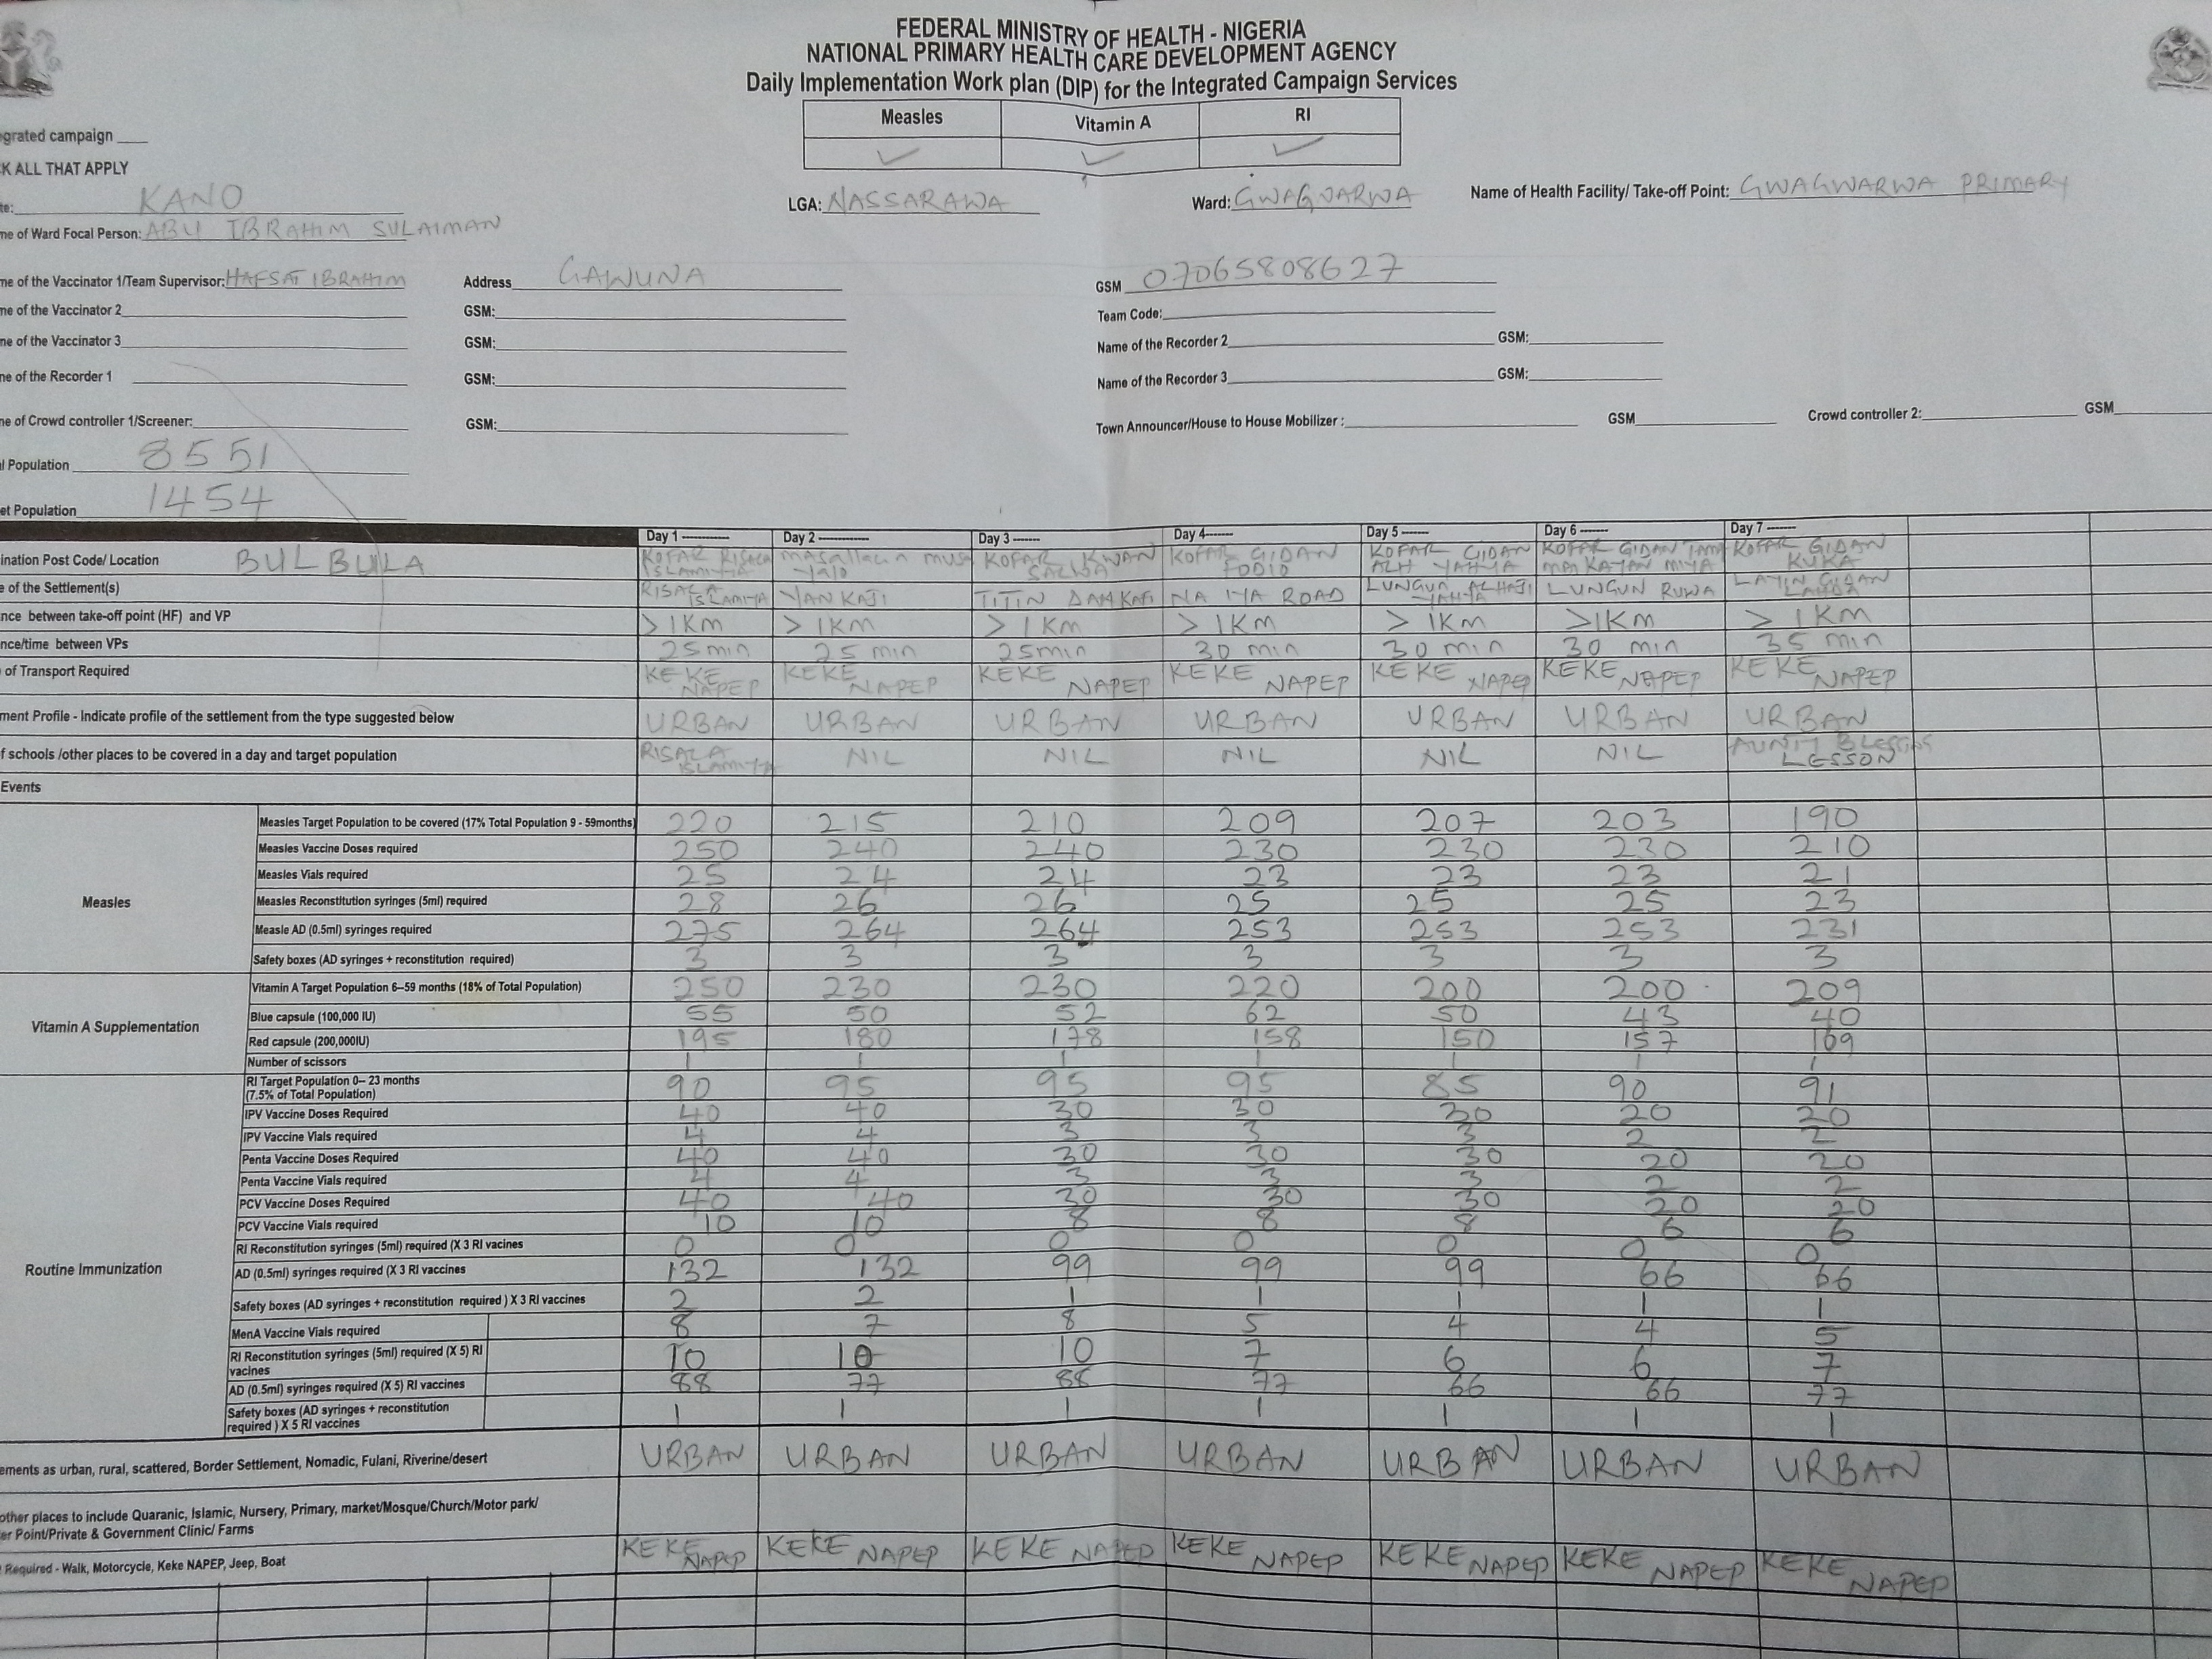 FEDERAL MINISTRY OF HEALTH - NIGERIA
NATIONAL PRIMARY HEALTH CARE DEVELOPMENT AGENCY
Daily Implementation Work plan (DIP) for the Integrated Campaign Services
Measles Vitamin A RI
✓ ✓ ✓
egrated campaign ____
K ALL THAT APPLY
te: KANO LGA: NASSARAWA Ward: GWAGWARWA Name of Health Facility/ Take-off Point: GWAGWARWA PRIMARY
me of Ward Focal Person: ABU IBRAHIM SULAIMAN
me of the Vaccinator 1/Team Supervisor: HAFSAT IBRAHIM Address GAWUNA GSM 07065808627
me of the Vaccinator 2 GSM: Team Code:
me of the Vaccinator 3 GSM: Name of the Recorder 2 GSM:
me of the Recorder 1 GSM: Name of the Recorder 3 GSM:
me of Crowd controller 1/Screener: GSM: Town Announcer/House to House Mobilizer : GSM Crowd controller 2: GSM
l Population 8551
et Population 1454
Day 1 Day 2 Day 3 Day 4 Day 5 Day 6 Day 7
ination Post Code/ Location BULBULA KOFAR RISALA ISLAMIYYA masallacin musa KOFAR KWAN SALWA KOFAR GIDAN FODIO KOFAR GIDAN ALH YAHYA KOFAR GIDAN KOFAR GIDAN KUKA
e of the Settlement(s) RISALA ISLAMIYA YANKAJI TITIN DANKAFI NA IYA ROAD LUNGUN ALHAJI YAHYA LUNGUN RUWA LAYIN GIDAN
nce between take-off point (HF) and VP >1KM >1KM >1KM >1KM >1KM >1KM >1KM
nce/time between VPs 25min 25 min 25min 30 min 30 min 30 min 35 min
of Transport Required KEKE NAPEP KEKE NAPEP KEKE NAPEP KEKE NAPEP KEKE NAPEP KEKE NAPEP KEKE NAPEP
ment Profile - Indicate profile of the settlement from the type suggested below URBAN URBAN URBAN URBAN URBAN URBAN URBAN
f schools /other places to be covered in a day and target population RISALA ISLAMIYA NIL NIL NIL NIL NIL AUNTY BLESSING LESSON
Events
Measles
Measles Target Population to be covered (17% Total Population 9 - 59months) 220 215 210 209 207 203 190
Measles Vaccine Doses required 250 240 240 230 230 230 210
Measles Vials required 25 24 24 23 23 23 21
Measles Reconstitution syringes (5ml) required 28 26 26 25 25 25 23
Measle AD (0.5ml) syringes required 275 264 264 253 253 253 231
Safety boxes (AD syringes + reconstitution required) 3 3 3 3 3 3 3
Vitamin A Supplementation
Vitamin A Target Population 6–59 months (18% of Total Population) 250 230 230 220 200 200 209
Blue capsule (100,000 IU) 55 50 52 62 50 43 40
Red capsule (200,000IU) 195 180 178 158 150 157 169
Number of scissors 1 1 1 1 1 1 1
Routine Immunization
RI Target Population 0– 23 months
(7.5% of Total Population) 90 95 95 95 85 90 91
IPV Vaccine Doses Required 40 40 30 30 30 20 20
IPV Vaccine Vials required 4 4 3 3 3 2 2
Penta Vaccine Doses Required 40 40 30 30 30 20 20
Penta Vaccine Vials required 4 4 3 3 3 2 2
PCV Vaccine Doses Required 40 40 30 30 30 20 20
PCV Vaccine Vials required 10 10 8 8 8 6 6
RI Reconstitution syringes (5ml) required (X 3 RI vacines 0 0 0 0 0 0 0
AD (0.5ml) syringes required (X 3 RI vaccines 132 132 99 99 99 66 66
Safety boxes (AD syringes + reconstitution required ) X 3 RI vaccines 2 2 1 1 1 1 1
MenA Vaccine Vials required 8 7 8 5 4 4 5
RI Reconstitution syringes (5ml) required (X 5) RI
vacines 10 10 10 7 6 6 7
AD (0.5ml) syringes required (X 5) RI vaccines 88 77 88 77 66 66 77
Safety boxes (AD syringes + reconstitution
required ) X 5 RI vaccines 1 1 1 1 1 1 1
ements as urban, rural, scattered, Border Settlement, Nomadic, Fulani, Riverine/desert URBAN URBAN URBAN URBAN URBAN URBAN URBAN
other places to include Quaranic, Islamic, Nursery, Primary, market/Mosque/Church/Motor park/
er Point/Private & Government Clinic/ Farms
Required - Walk, Motorcycle, Keke NAPEP, Jeep, Boat KEKE NAPEP KEKE NAPEP KEKE NAPEP KEKE NAPEP KEKE NAPEP KEKE NAPEP KEKE NAPEP